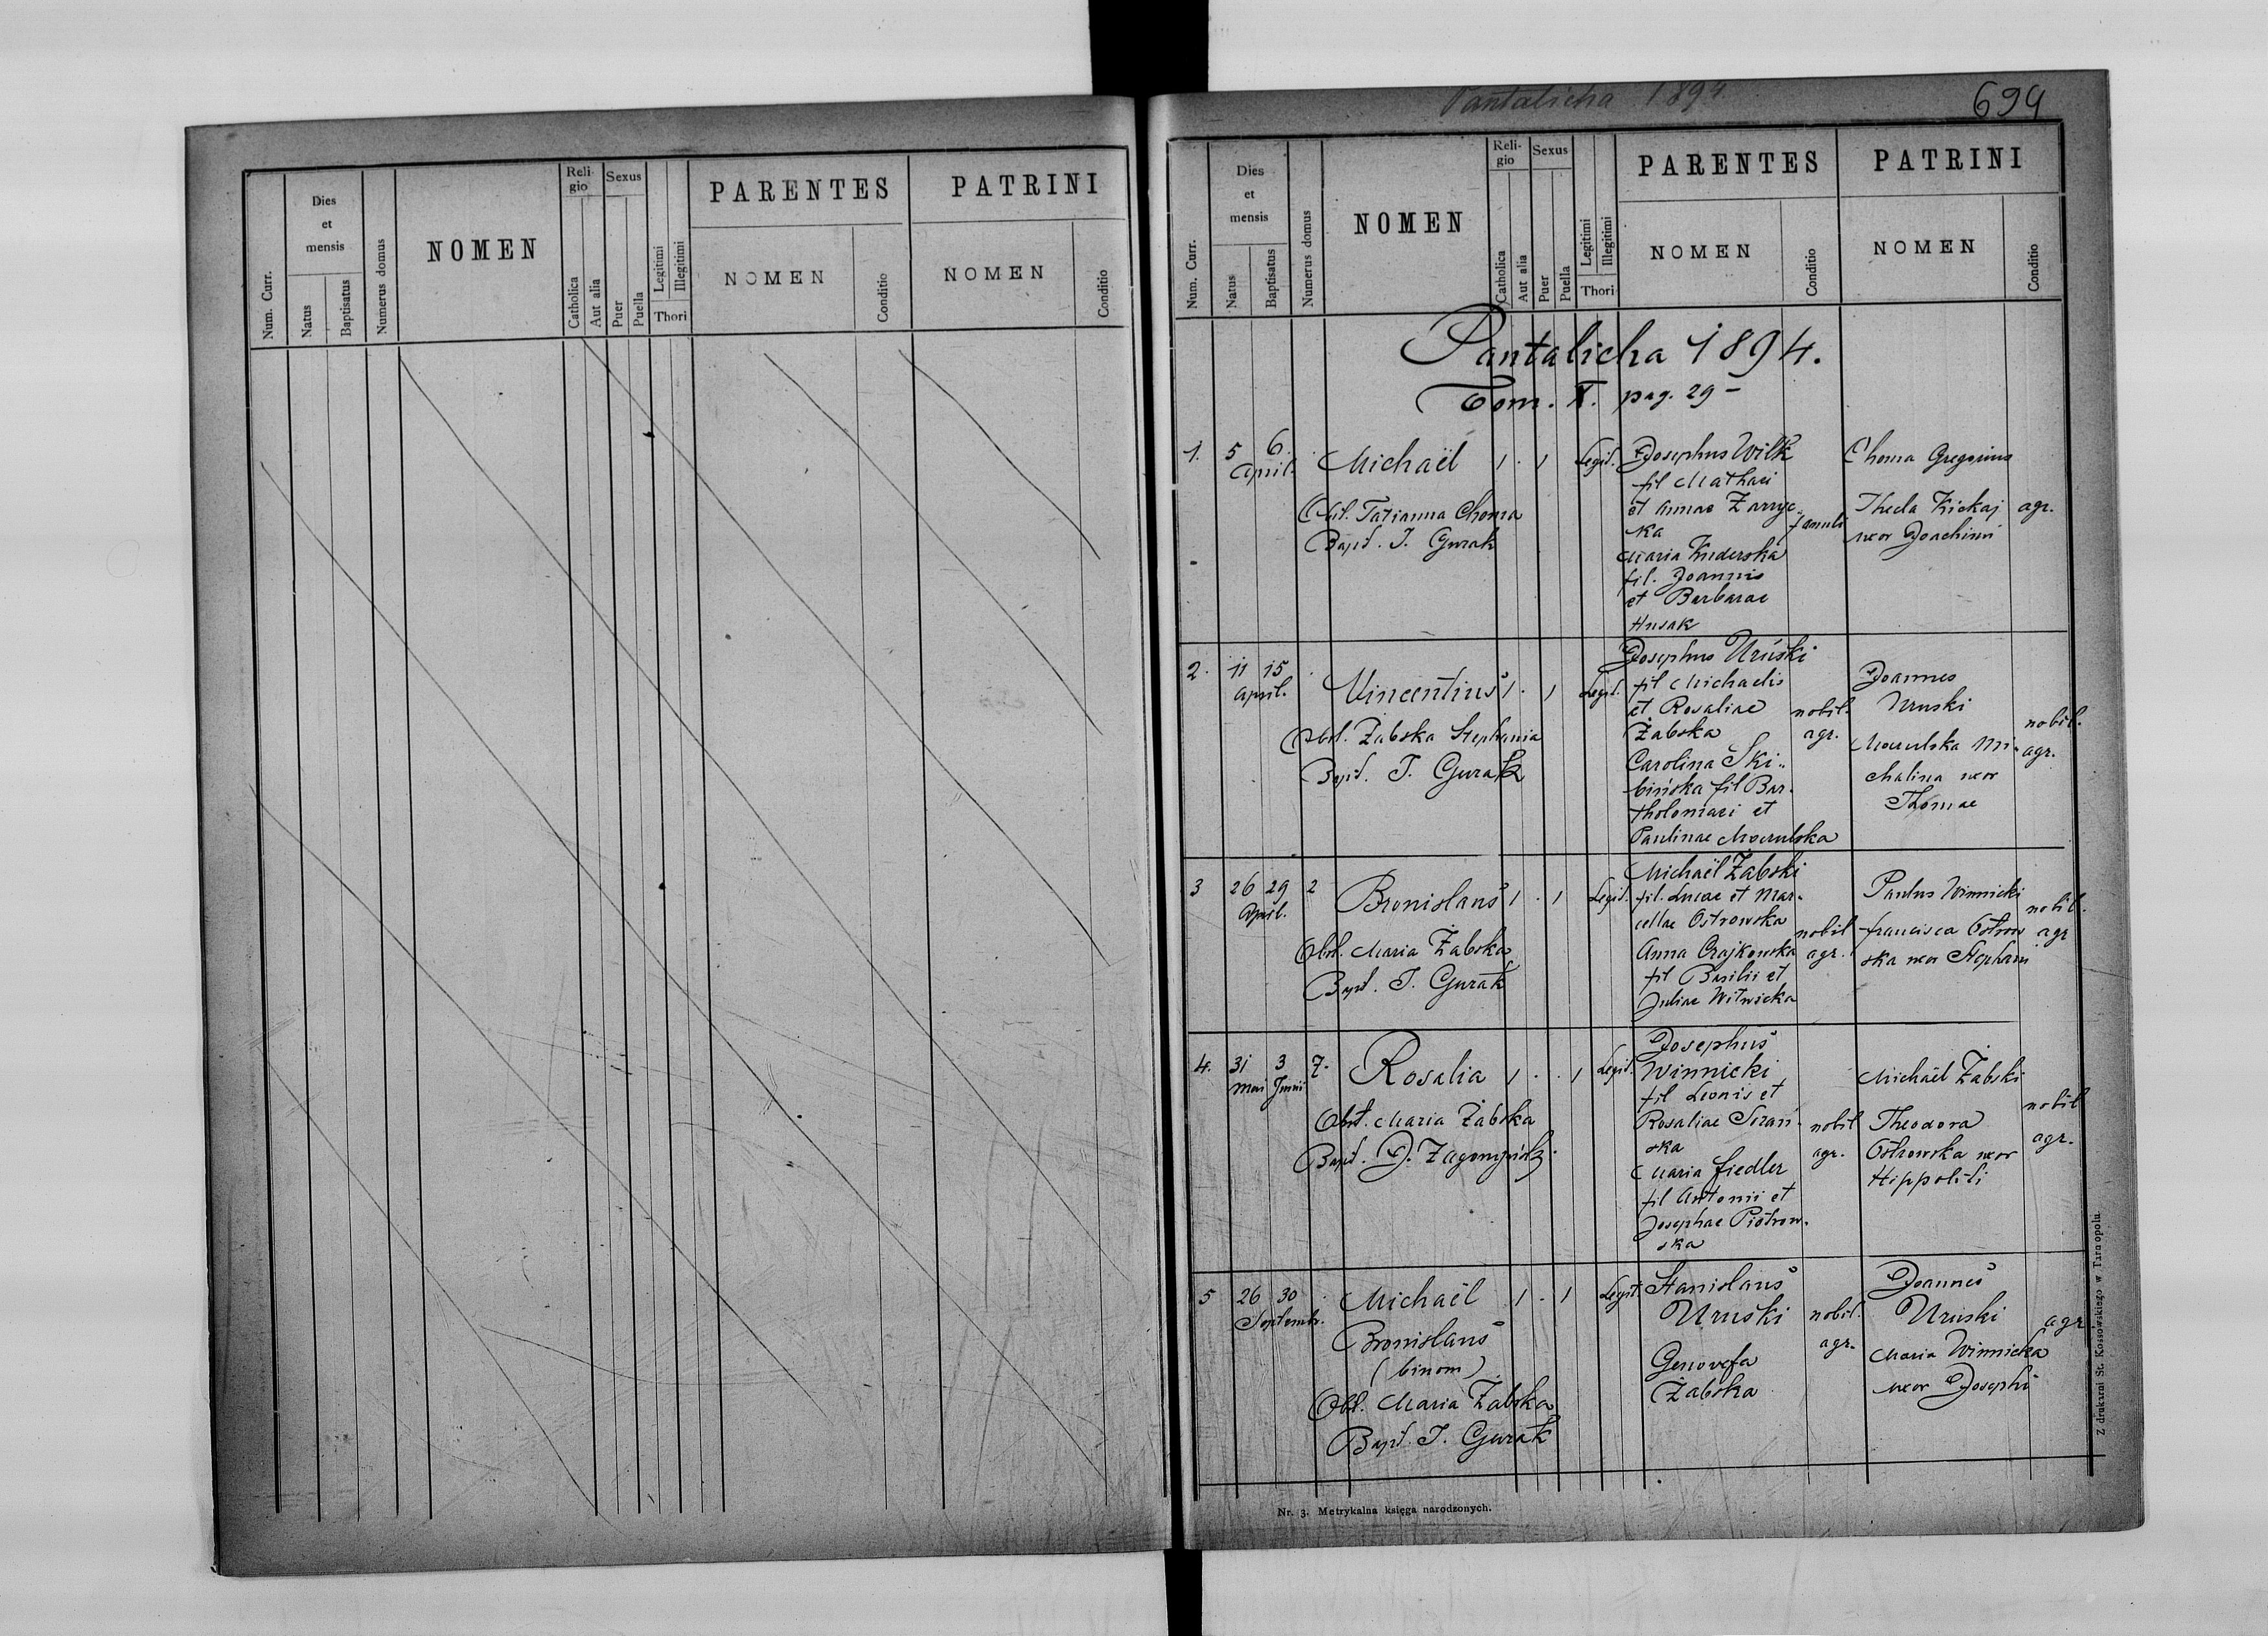 Num. Curr.
Dies et mensis
Natus
Baptisatus
Numerus domus
NOMEN
Reli-
gio
Catholica
Aut alia
Sexus
Puer
Puella
Legitimi
Illegitimi
Thori
PARENTES
NOMEN
Conditio
PATRINI
NOMEN
Conditio
Pantalicha 1894
699
Num. Curr.
Dies et mensis
Natus
Baptisatus
Numerus domus
NOMEN
Reli-
gio
Catholica
Aut alia
Sexus
Puer
Puella
Legitimi
Illegitimi
Thori
PARENTES
NOMEN
Conditio
PATRINI
NOMEN
Conditio
Pantalicha 1894.
Tom. X. pag. 29
1. 5 6 April. Michaël 1 . 1 Legit.
Obst. Tatianna Choma
Bapt. J. Gurak
Josephus Wilk
fil Mathaei
et Annae Zarryc-
ka
Maria Kuderska
fil. Joannis
et Barbarae
Husak
famuli
Choma Gregorius
Theda Kickaj
uxor Joachimi
agr.
2. 11 15 April. Vincentius 1 . 1 Legit.
Obst. Żabska Stephania
Bapt. J. Gurak
Josephus Uruski
fil Michaelis
et Rosaliae
Żabska
Carolina Ski-
bińska fil Bar-
tholomaei et
Paulinae Mocrulska
nobil.
agr.
Joannes
Uruski
Mocrulska Mi-
chalina uxor
Thomae
nobil.
agr.
3 26 29 April. 2 Bronislaus 1 . 1 Legit.
Obst. Maria Żabska
Bapt. J. Gurak
Michaël Żabski
fil. Lucae et Mar-
cellae Ostrowska
Anna Czajkowska
fil Basilii et
Juliae Witwicka
nobil
agr.
Paulus Winnicki
Francisca Ostrow
ska uxor Stephani
nobil.
agr
4. 31 Mai 3 Junii 7. Rosalia 1 . . 1 Legit.
Obst. Maria Żabska
Bapt. D.
Josephus
Winnicki
fil Leonis et
Rosaliae
ska
Maria Fiedler
fil Antonii et
Josephae Piotrow-
ska
nobil
agr.
Michaël Żabski
Theodora
Ostrowska uxor
Hippoliti
nobil
agr.
5 26 30 Septemb. Michaël 1 . 1 Legit.
Bronislaus
(binom)
Obst. Maria Żabska
Bapt. J. Gurak
Stanislaus
Uruski
Genovefa
Żabska
nobil.
agr.
Joannes
Uruski
Maria Winnicka
uxor Josephi
agr
Nr. 3. Metrykalna księga narodzonych.
Z drukarni St. Kossowskiego w Tarnopolu.